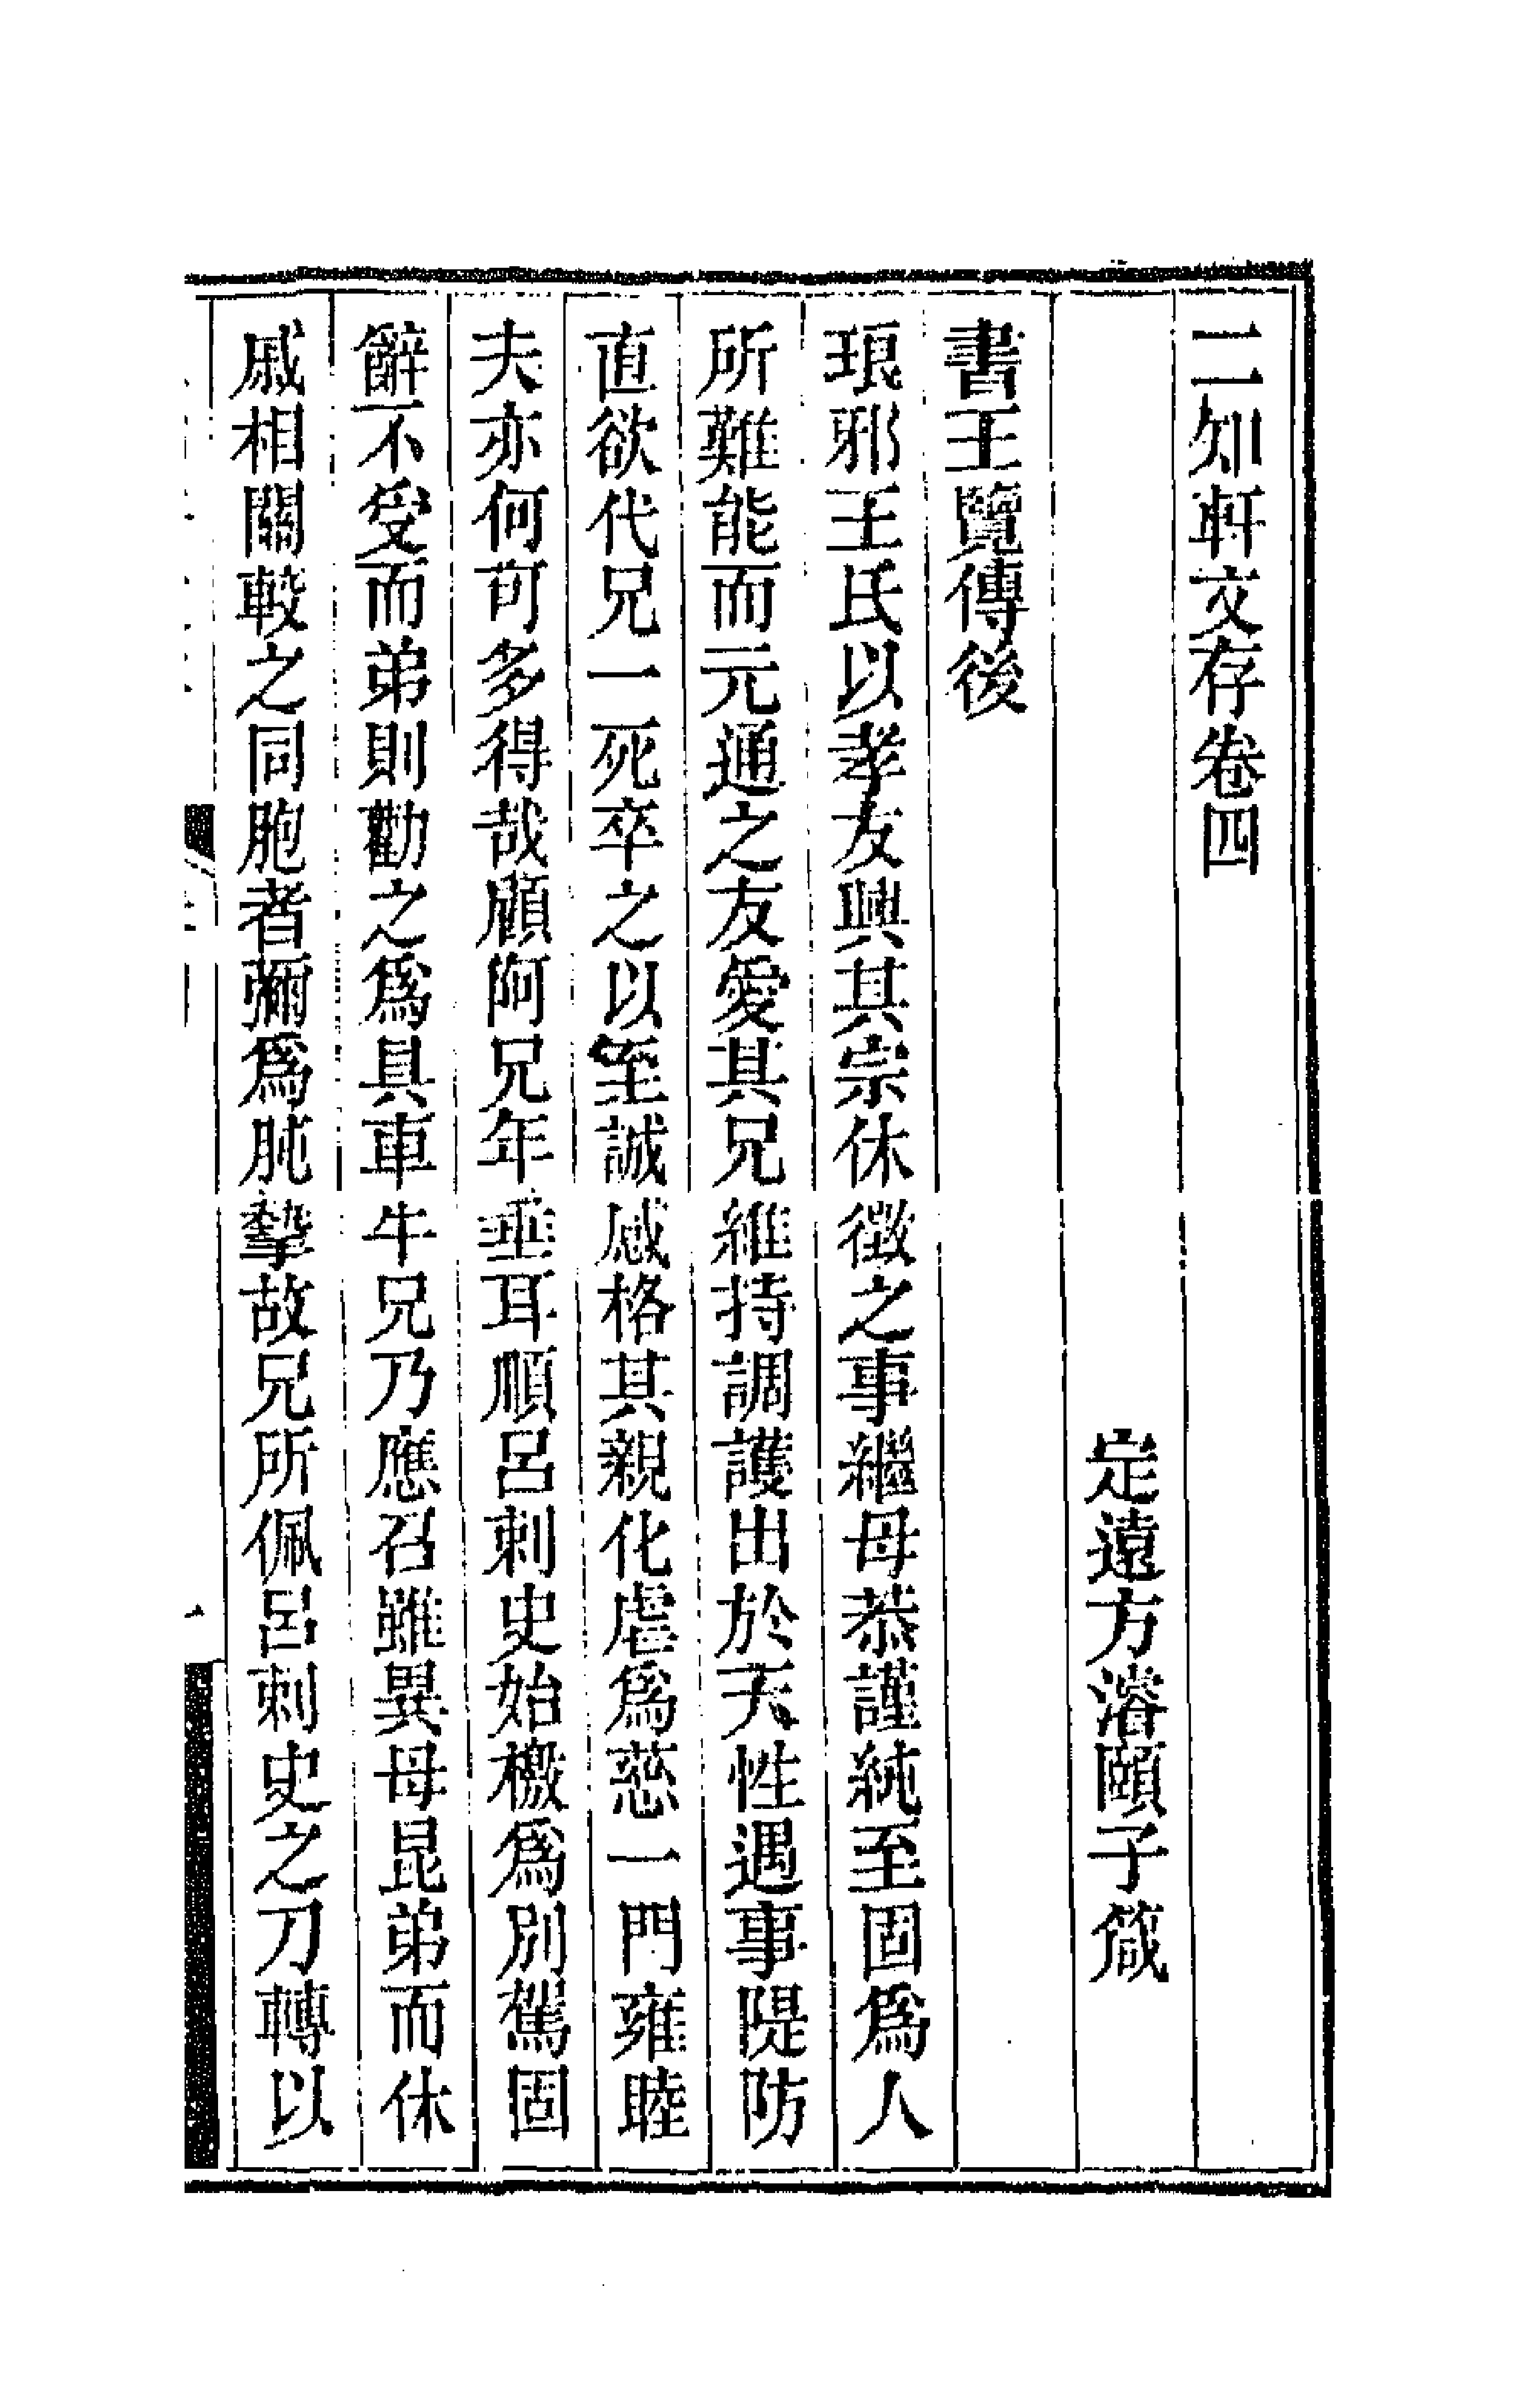 二知軒文存卷四
定遠方濬頤子箴
書王覽傳後
琅邪王氏以孝友興其宗休徵之事繼母恭謹純至固爲人
所難能而元通之友愛其兄維持調護出於天性遇事隄防
直欲代兄一死卒之以至誠感格其親化虐爲慈一門雍睦
夫亦何可多得哉顧阿兄年垂耳順呂刺史始檄爲別駕固
辭不受而弟則勸之爲具車牛兄乃應召雖異母昆弟而休
戚相關較之同胞者彌爲肫摯故兄所佩呂刺史之刀轉以